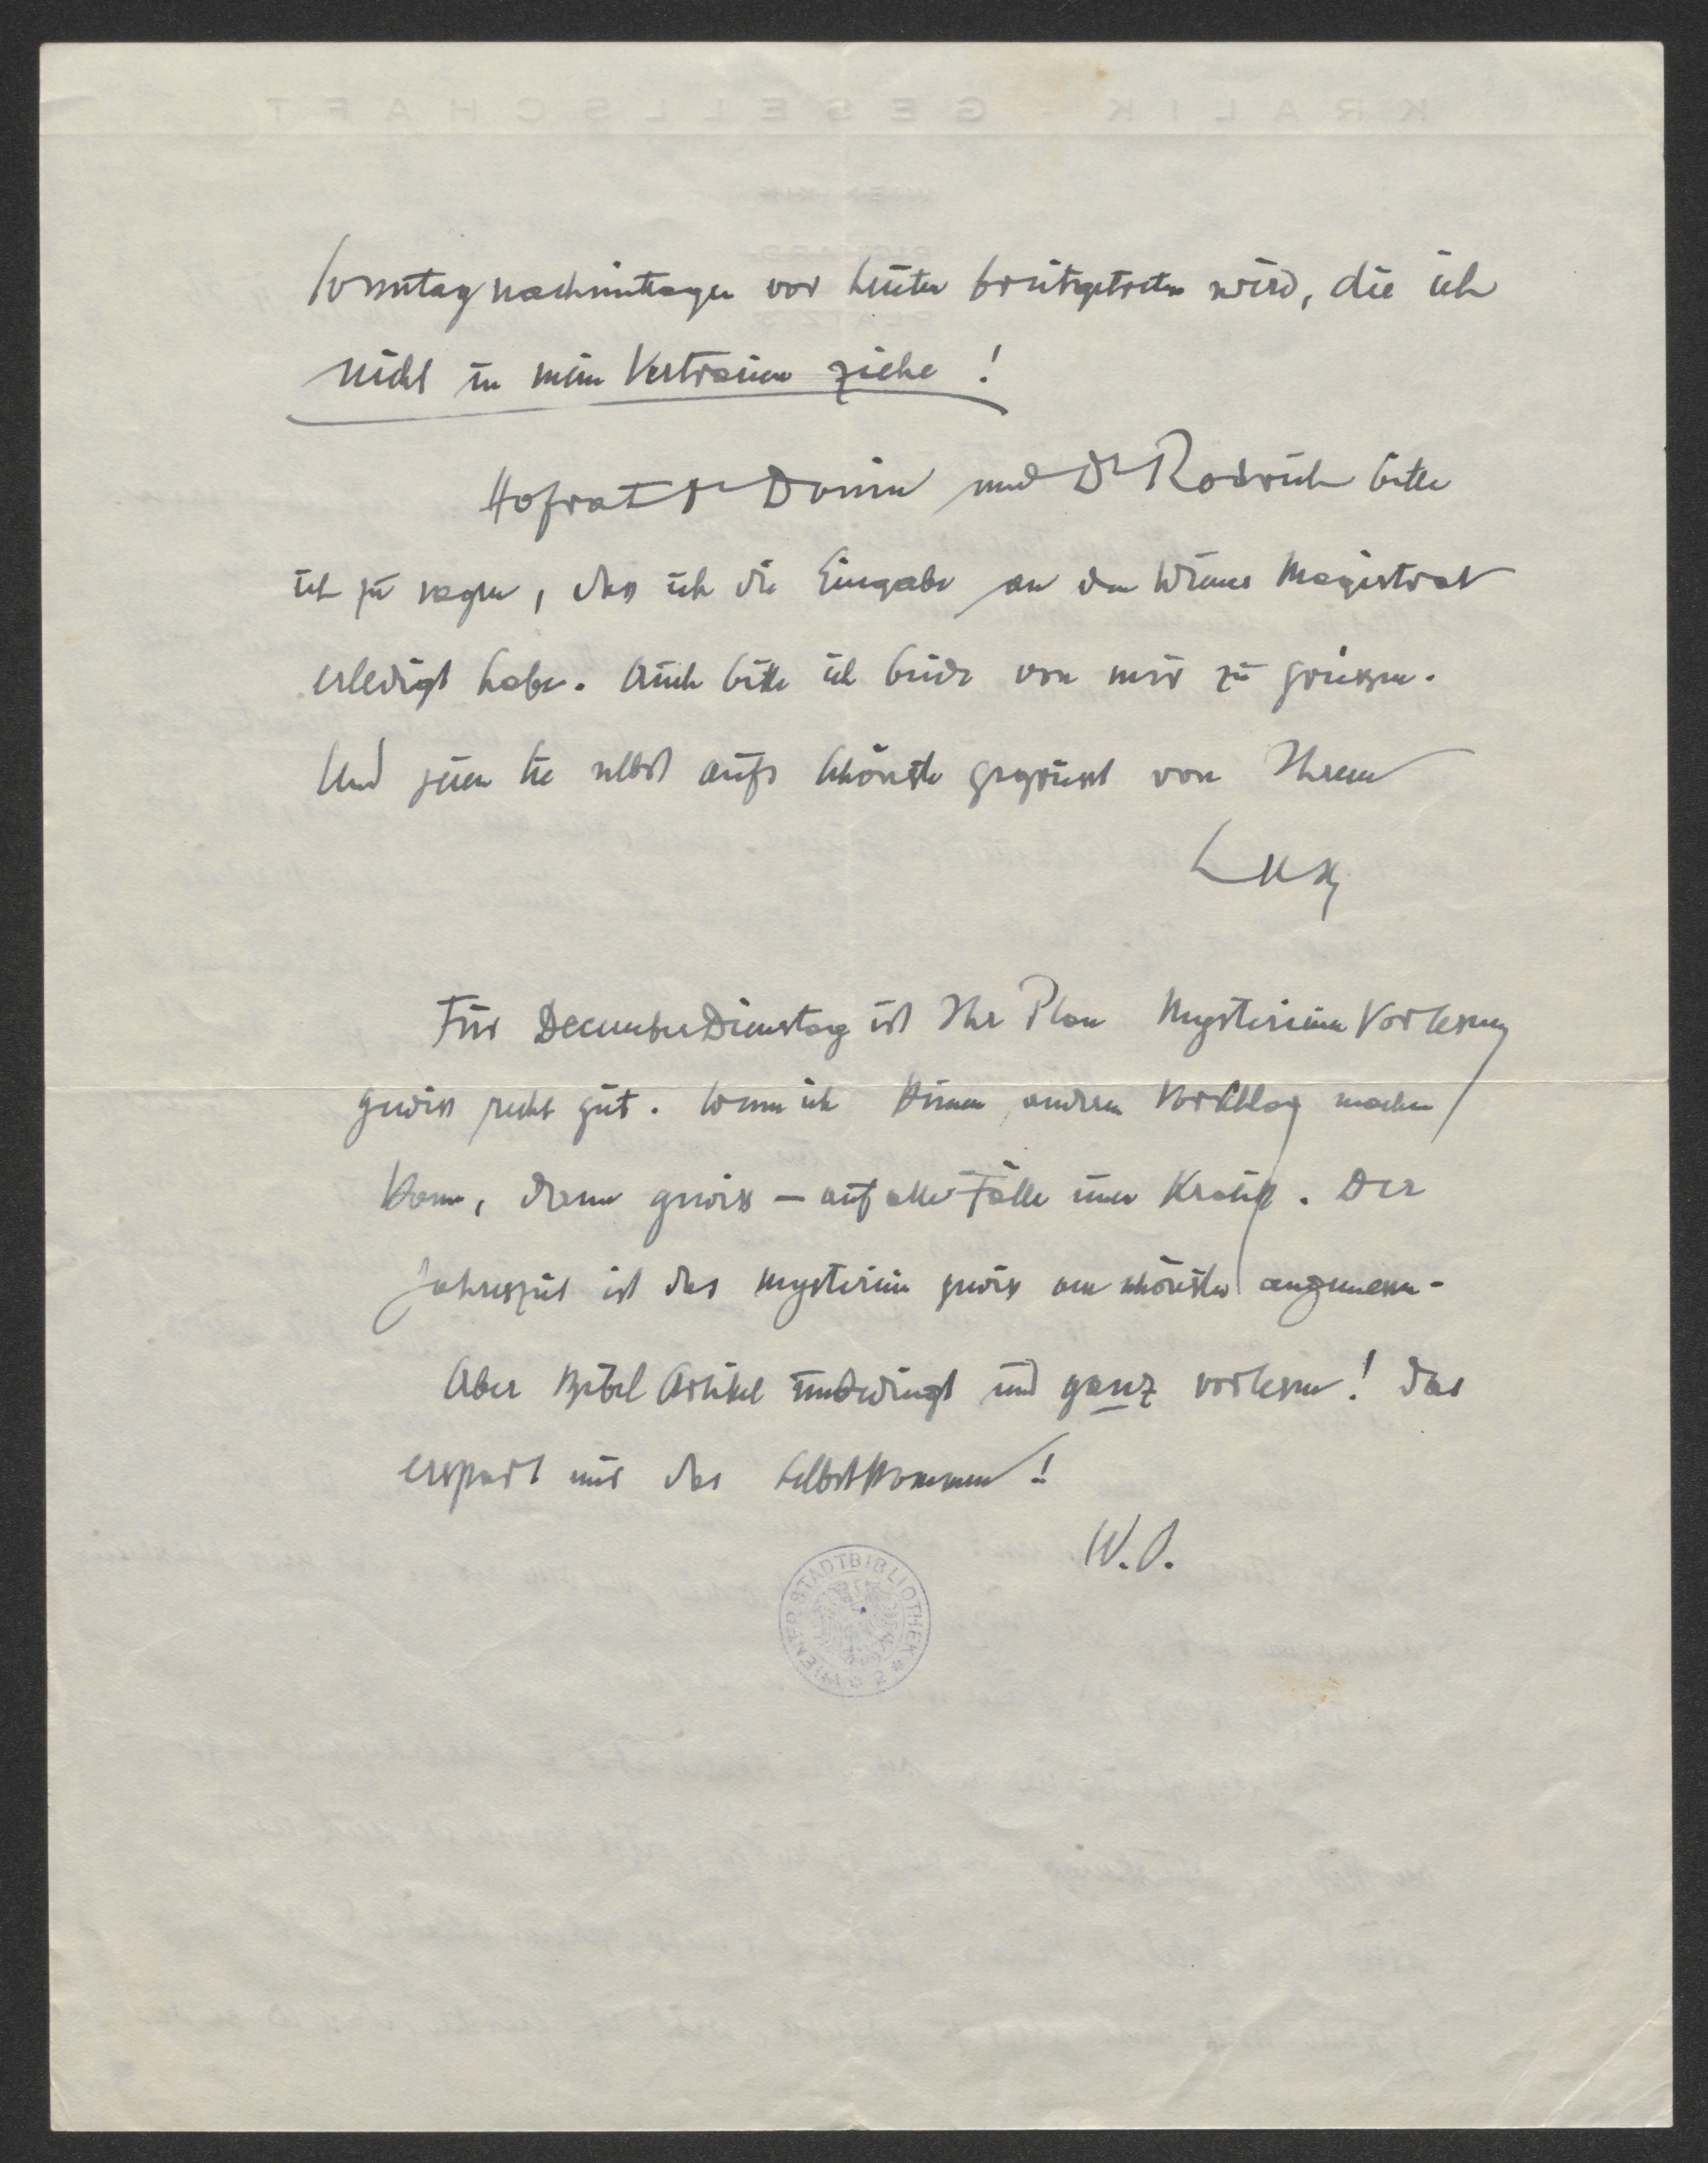 Sonntagnachmittagen vor Leuten breitgetreten wird, die ich
nicht in mein Vertrauen ziehe!
Hofrat Dr Donin und Dr Rodrich bitte
ich zu sagen, dass ich die Eingabe an den Wiener Magistrat
erledigt habe. Auch bitte ich beide von mir zu grüssen.
Und seien Sie selbst aufs schönste gegrüsst von Ihrem
Lux
Für DecemberDienstag ist Ihr Plan Mysterium Vorlesung
gewiss recht gut. Wenn ich keinen anderen Vorschlag machen
kann, dann gewiss – auf alle Fälle nur Kralik. Der
Jahreszeit ist das Mysterium gewiss am schönsten angemessen.
Aber Artikel unbedingt und ganz vorlesen! Das
erspart mir das Selbstkommen!
WIENER STADTBIBLIOTHEK
KRALIK-GESELLSCHAFT